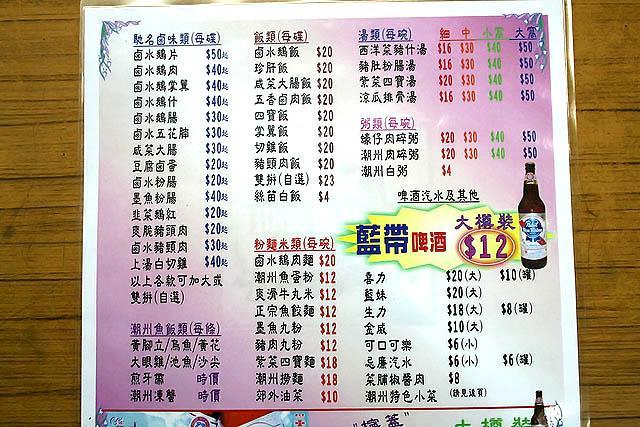 馳名鹵味類(每碟)
鹵水鵝片 $50起
鹵水鵝肉 $40起
鹵水鵝掌翼 $40起
鹵水鵝什 $40起
鹵水鵝腸 $30起
鹵水五花腩 $30起
咸菜大腸 $30起
豆腐鹵蛋 $20起
鹵水粉腸 $20起
墨魚粉腸 $40起
韭菜鵝紅 $20起
爽脆豬頭肉 $20起
鹵水豬頸肉 $30起
上湯白切雞 $40起
以上各款可加大或
雙拼(自選)
潮州魚飯類(每條)
黃腳立/烏魚/黃花
大眼雞/池魚/沙尖
煎牙帶 時價
潮州凍蟹 時價
飯類(每碟)
鹵水鵝飯 $20
珍肝飯 $20
咸菜大腸飯 $20
五香鹵肉飯 $20
四寶飯 $20
掌翼飯 $20
切雞飯 $20
豬頸肉飯 $20
雙拼(自選) $23
絲苗白飯 $4
粉麵米類(每碗)
鹵水鵝肉麵 $20
潮州魚蛋粉 $12
爽滑牛丸米 $12
正宗魚餃麵 $12
墨魚丸粉 $12
豬肉丸粉 $12
紫菜四寶麵 $18
潮州撈麵 $18
郊外油菜 $10
湯類(每碗) 細 中 小窩 大窩
西洋菜豬什湯 $16 $30 $40 $50
豬肚粉腸湯 $16 $30 $40 $50
紫菜四寶湯 $20 $30 $40 $50
涼瓜排骨湯 $16 $30 $40 $50
粥類(每碗)
蠔仔肉碎粥 $20 $30 $40 $50
潮州肉碎粥 $20 $30 $40 $50
潮州白粥 $4
啤酒汽水及其他
藍帶啤酒 大樽裝 $12
喜力 $20(大) $10(罐)
藍妹 $20(大)
生力 $18(大) $8(罐)
金威 $10(大)
可口可樂 $6(小)
忌廉汽水 $6(小) $6(罐)
菜脯椒醬肉 $8
潮州特色小菜 (請見後頁)
大樽裝